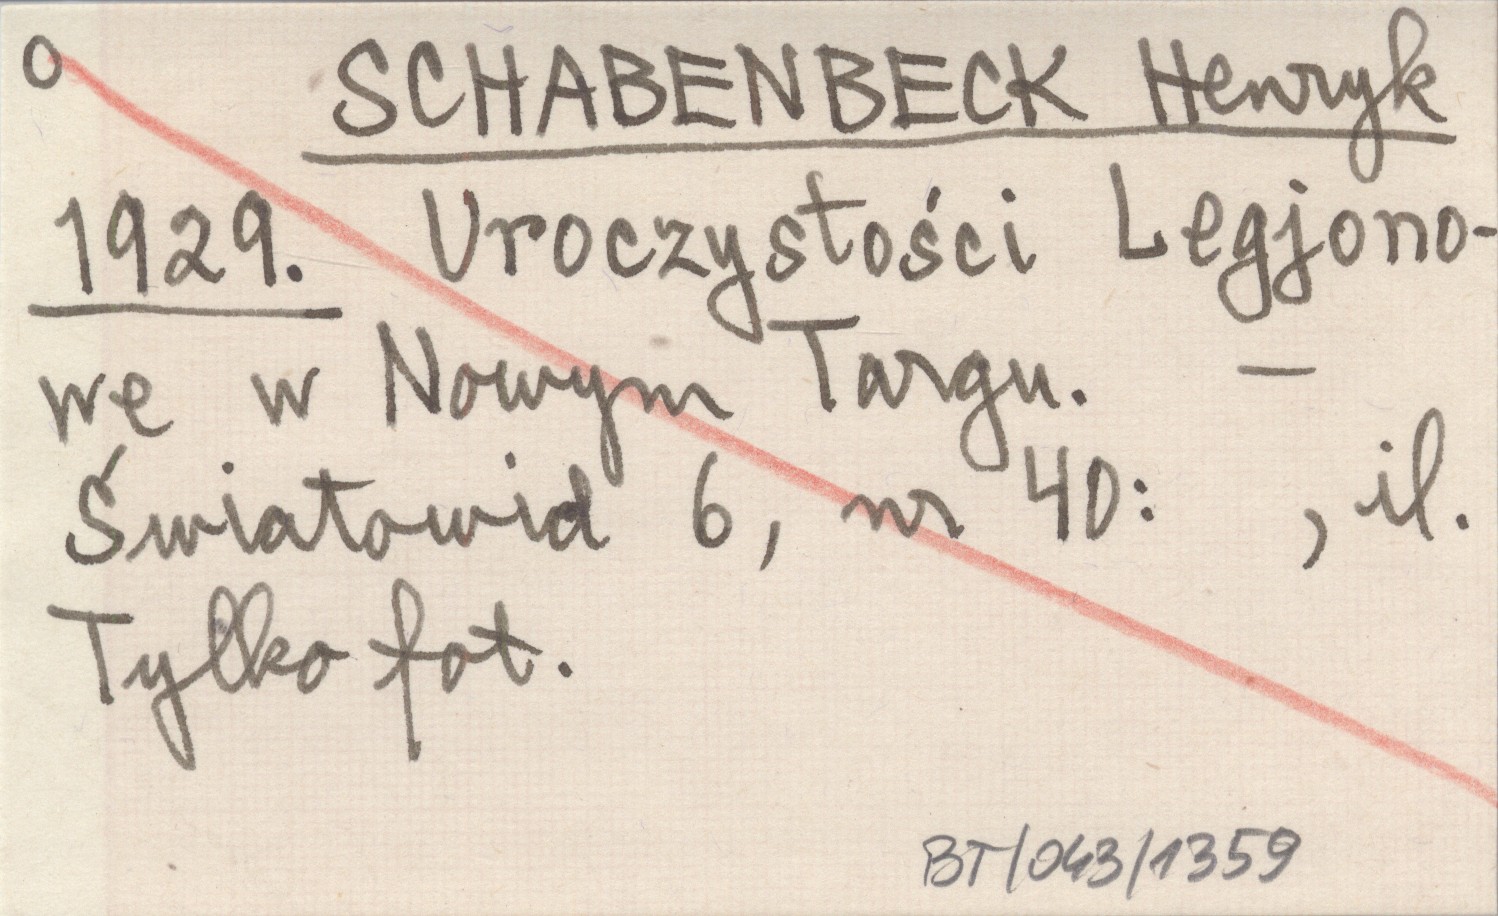 o SCHABENBECK Henryk
1929. Uroczystości Legjono-
we w Nowym Targu. —
Światowid 6, nr 40: , il.
Tylko fot.
BT/043/1359